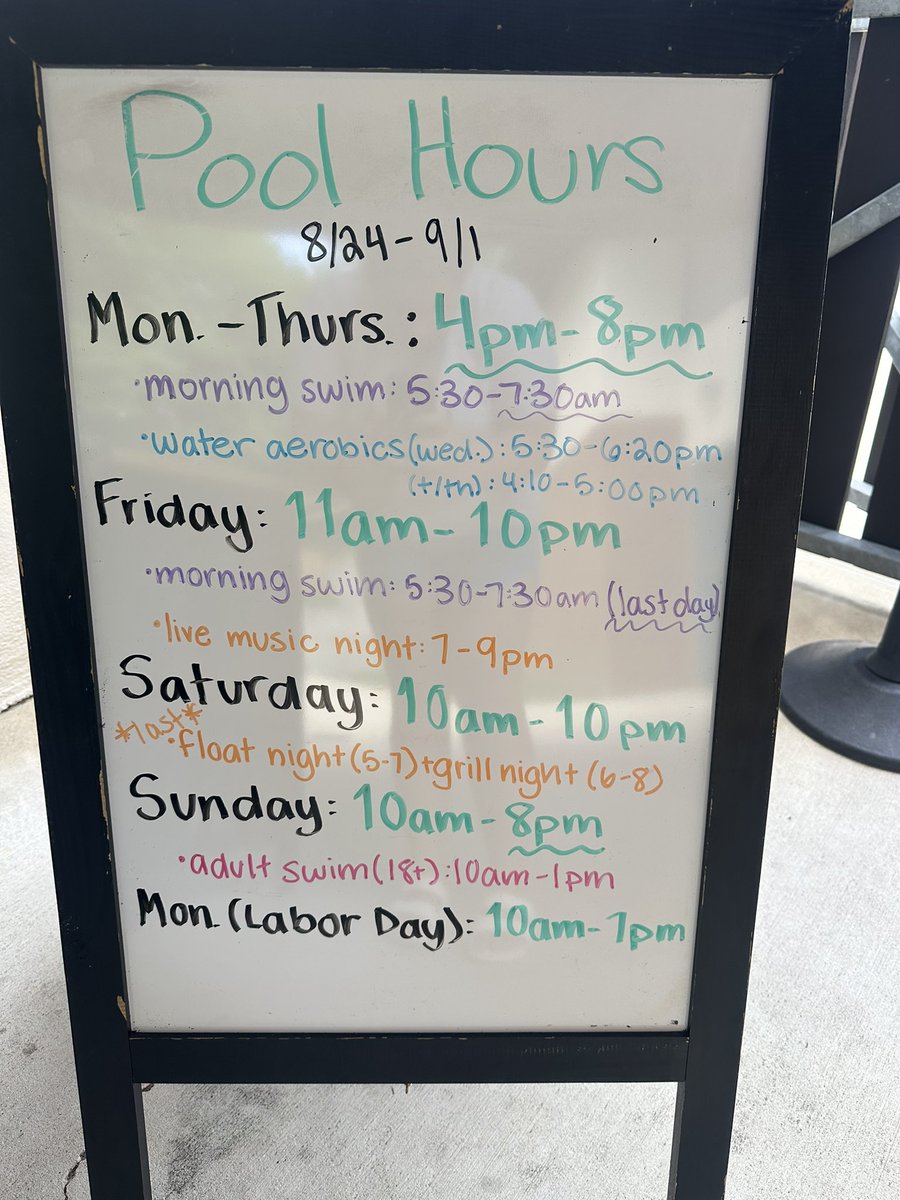 Pool Hours
8/24-9/1
Mon.-Thurs.: 4pm-8pm
•morning swim: 5:30-7:30am
•water aerobics(wed.): 5:30-6:20pm
(t/th): 4:10-5:00pm
Friday: 11am-10pm
•morning swim: 5:30-7:30am (last day)
•live music night: 7-9pm
Saturday: 10am-10pm
*last*
•float night (5-7)+grill night (6-8)
Sunday: 10am-8pm
•adult swim(18+):10am-1pm
Mon. (Labor Day): 10am-7pm